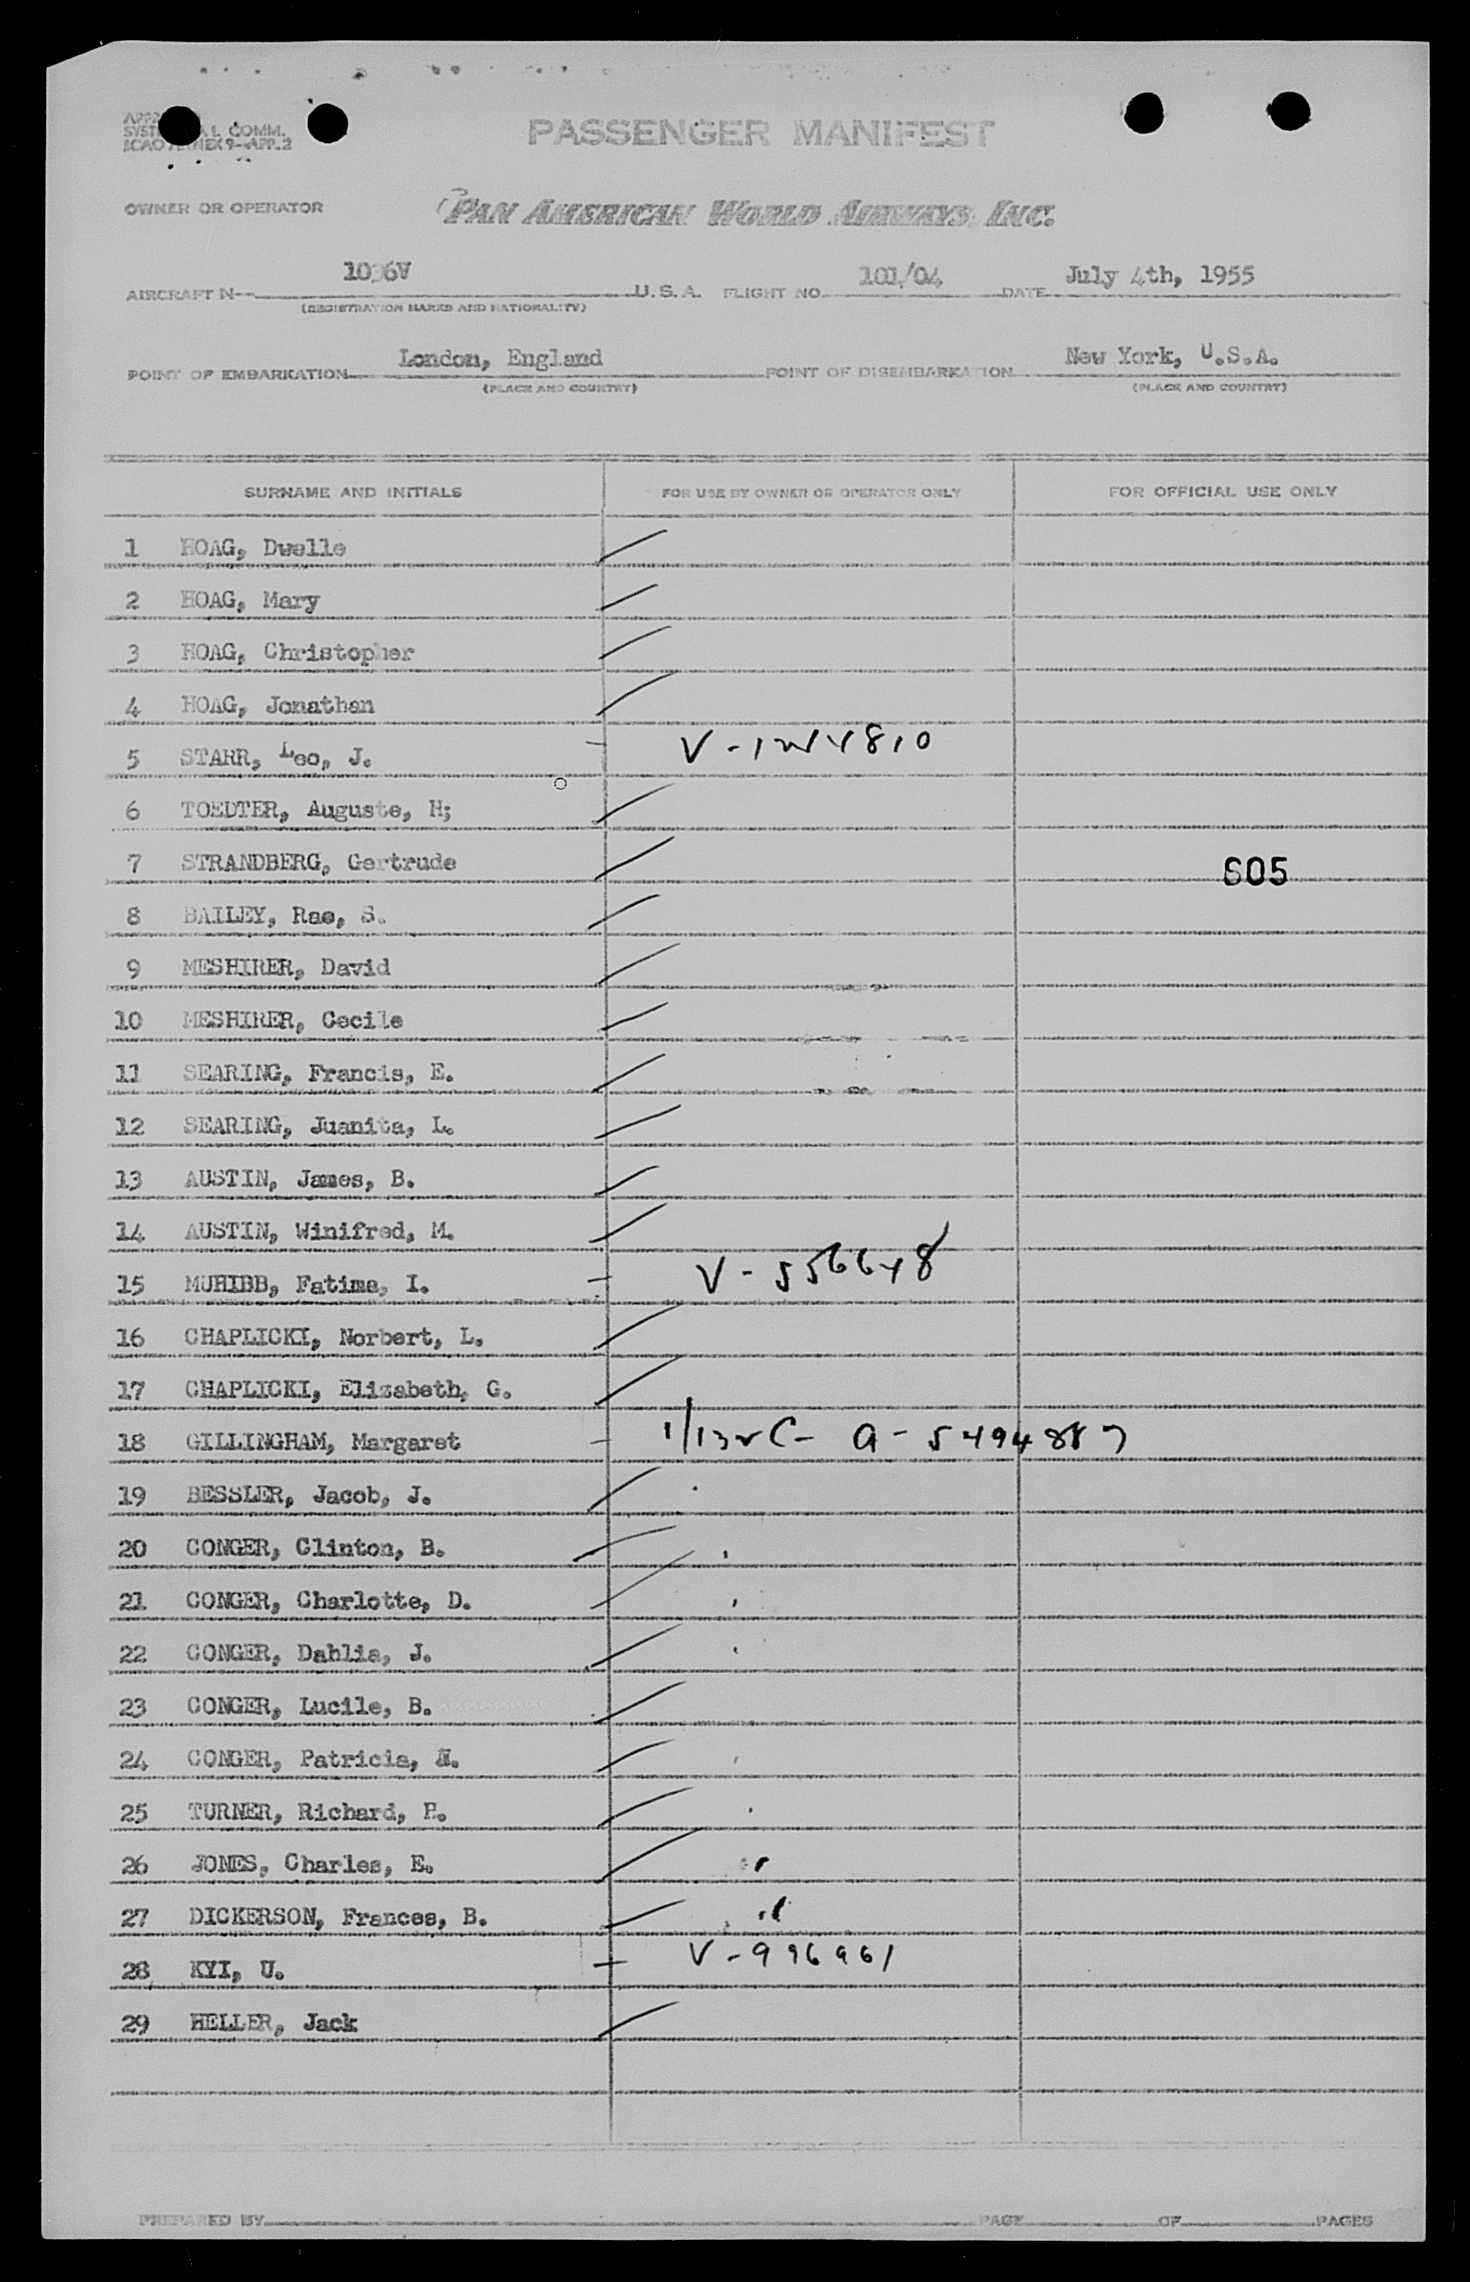 PASSENGER MANIFEST
OWNER OR OPERATOR PAN AMERICAN WORLD AIRWAYS, INC.
AIRCRAFT N-- 1036V U.S.A. FLIGHT NO. 101/04 DATE July 4th, 1955
(REGISTRATION MARKS AND NATIONALITY)
POINT OF EMBARKATION London, England POINT OF DISEMBARKATION New York, U.S.A.
(PLACE AND COUNTRY) (PLACE AND COUNTRY)
SURNAME AND INITIALS FOR USE BY OWNER OR OPERATOR ONLY FOR OFFICIAL USE ONLY
1 HOAG, Dwelle
2 HOAG, Mary
3 HOAG, Christopher
4 HOAG, Jonathan
5 STARR, Leo, J.
6 TOEDTER, Auguste, H;
7 STRANDBERG, Gertrude 605
8 BAILEY, Rae, S.
9 MESHIRER, David
10 MESHIRER, Cecile
11 SEARING, Francis, E.
12 SEARING, Juanita, L.
13 AUSTIN, James, B.
14 AUSTIN, Winifred, M.
15 MUHIBB, Fatima, I. V-556648
16 CHAPLICKI, Norbert, L.
17 CHAPLICKI, Elizabeth, G.
18 GILLINGHAM, Margaret
19 BESSLER, Jacob, J.
20 CONGER, Clinton, B.
21 CONGER, Charlotte, D.
22 CONGER, Dahlia, J.
23 CONGER, Lucile, B.
24 CONGER, Patricia,
25 TURNER, Richard, H.
26 JONES, Charles, E.
27 DICKERSON, Frances, B.
28 KYI, U. V-996961
29 HELLER, Jack
PREPARED BY PAGE OF PAGES